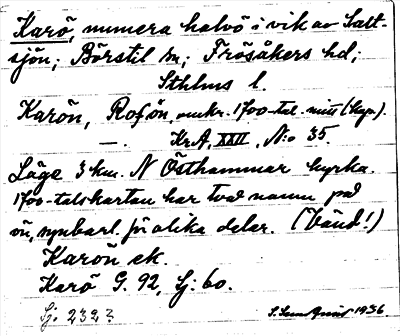 Karö, numera halvö i vik av Salt-
sjön; Börstil sn; Frösåkers hd;
Sthlms l.
Karön, Rofön, omkr. 1700-tal. mitt (kop).
—. Kr.A, XXII, N:o 35.
Läge 3 km. N Östhammar kyrka.
1700-talskartan har två namn på
ön, uppbarl. för olika delar. (Vänd!)
Karön ek.
Karö G. 92, Sj: 60.
Sj: 232 2
1936